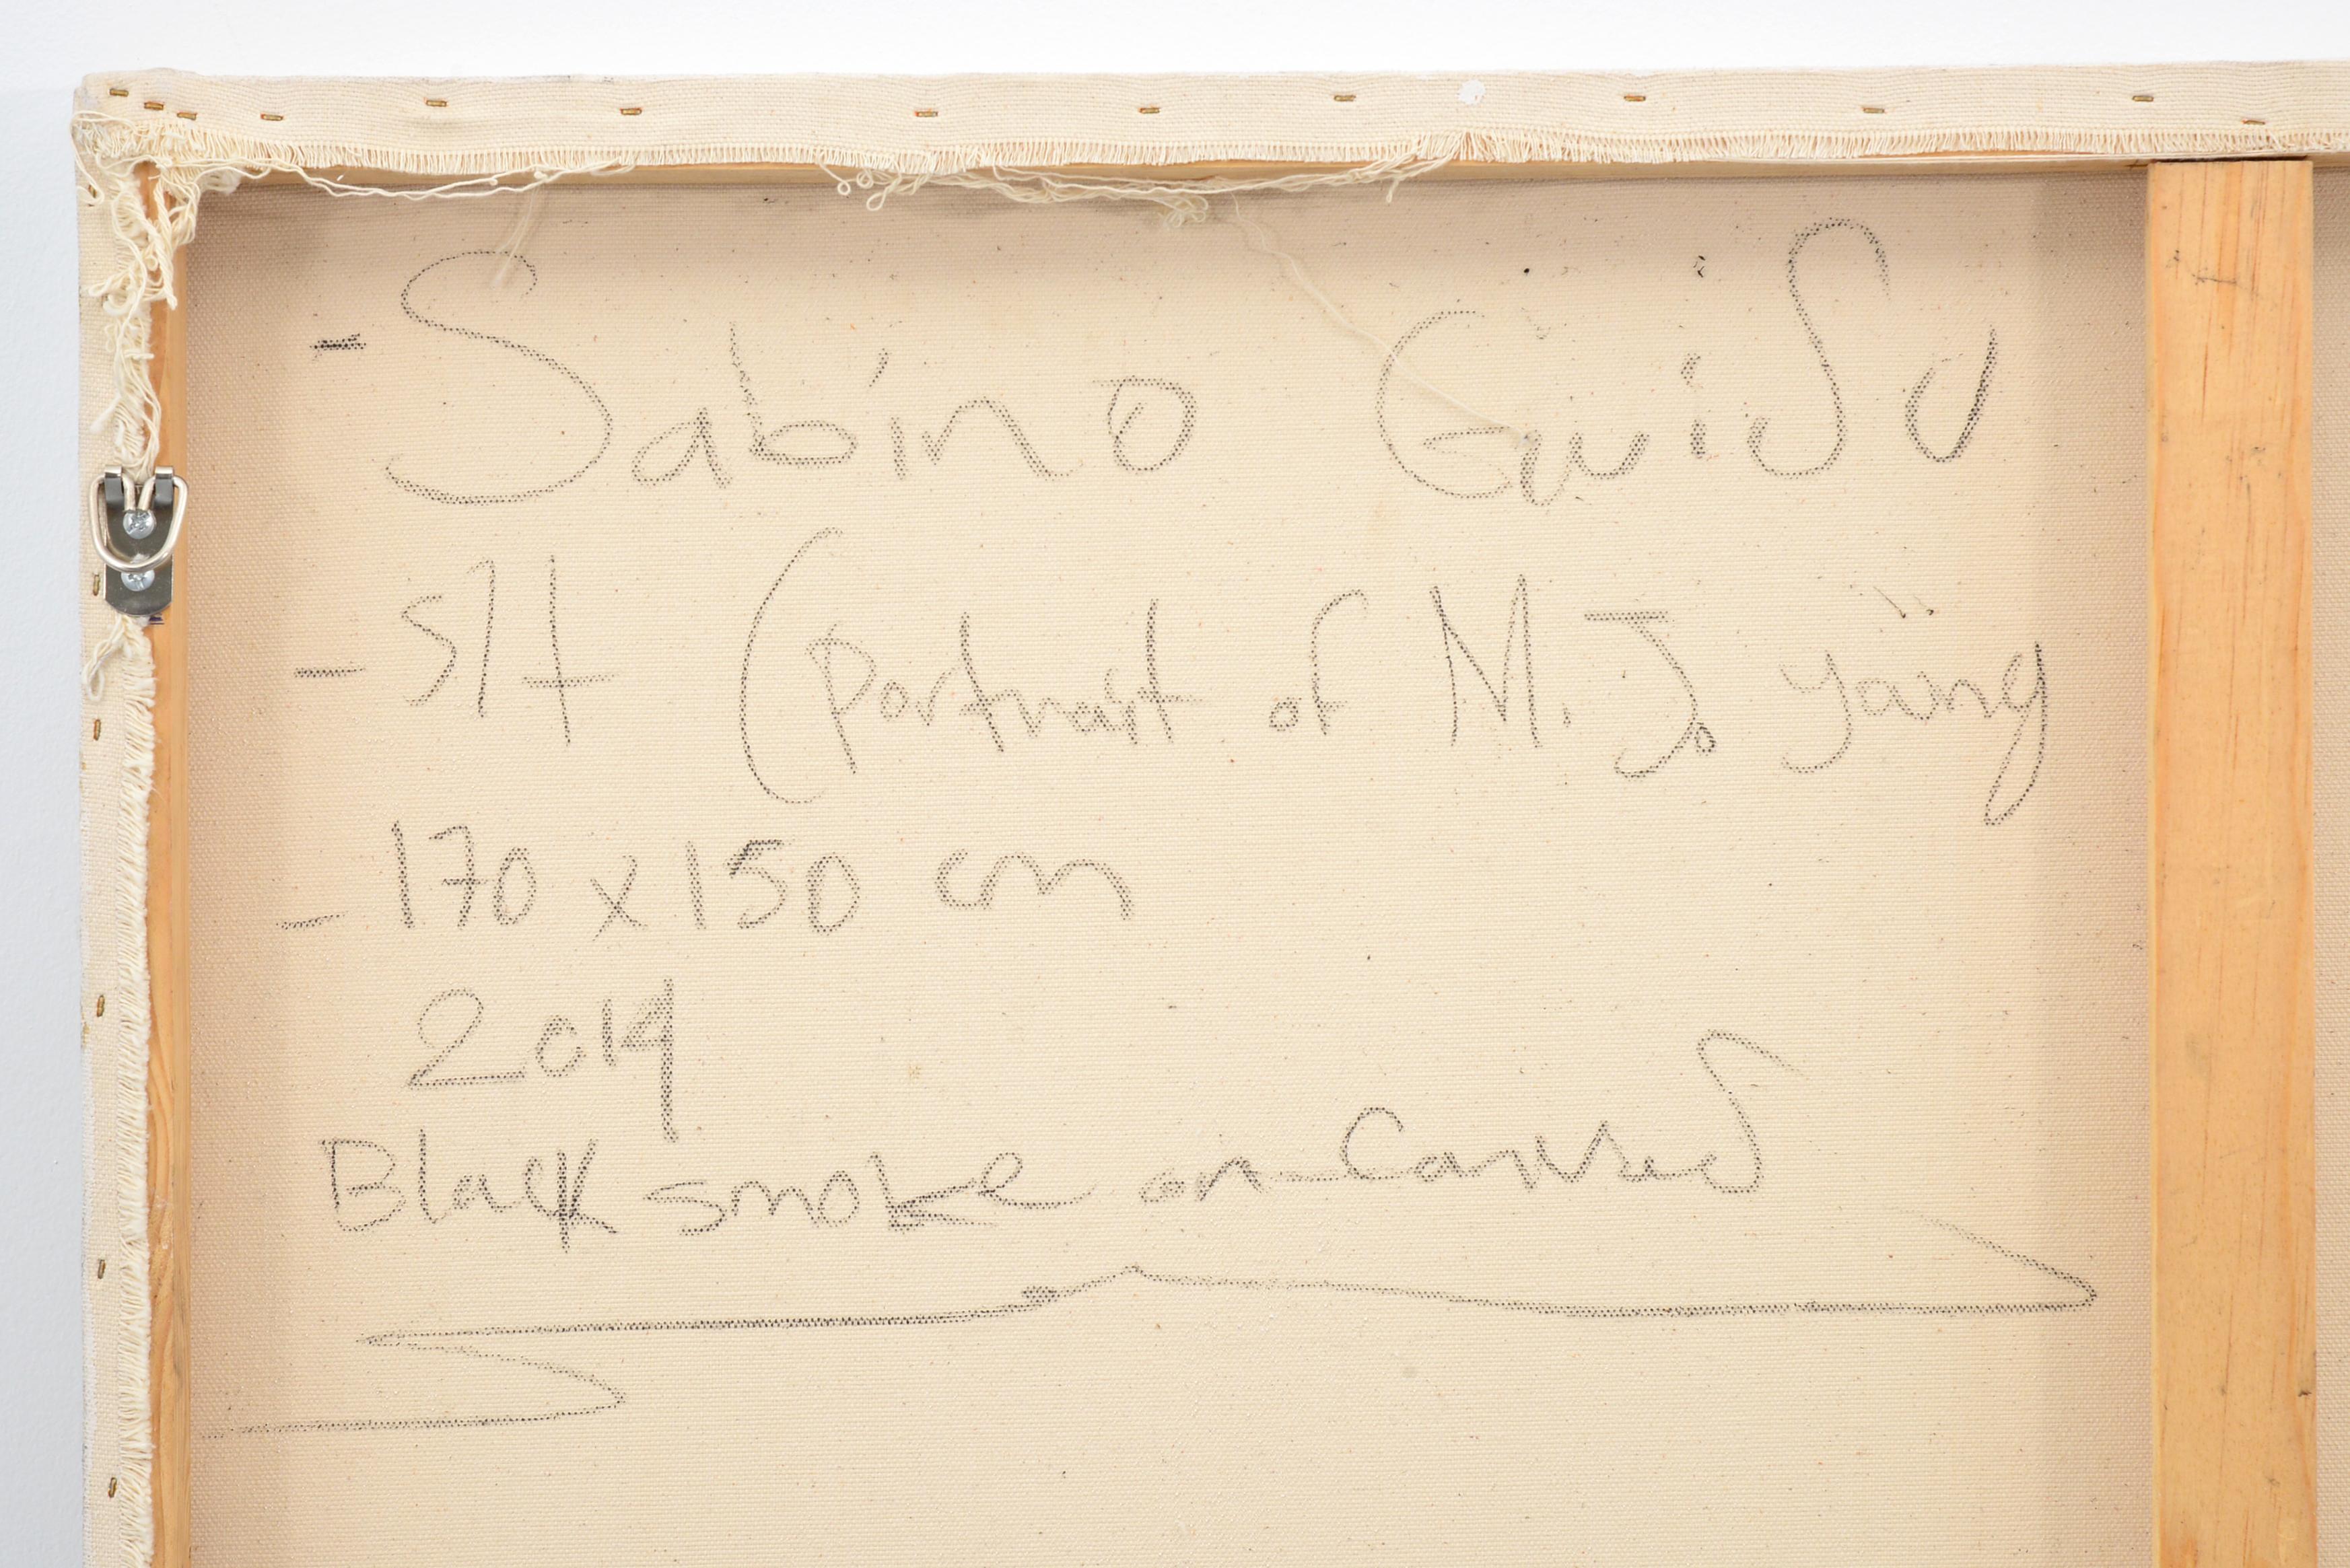 - Sabino Guisu
- S/t (Portrait of M. J. Yäng
- 170 x 150 cm
2014
Black smoke on canvas